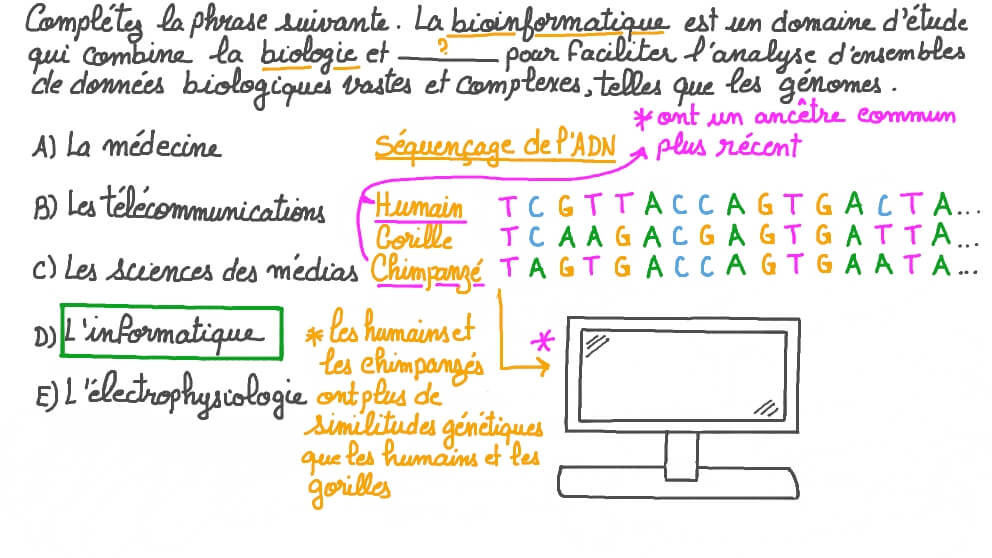 Complétez la phrase suivante. La bioinformatique est un domaine d'étude
qui combine la biologie et ____?____ pour faciliter l'analyse d'ensembles
de données biologiques vastes et complexes, telles que les génomes.
A) La médecine
B) Les télécommunications
C) Les sciences des médias
D) L'informatique
E) L'électrophysiologie
Séquençage de l'ADN
* ont un ancêtre commun
plus récent
Humain T C G T T A C C A G T G A C T A...
Gorille T C A A G A C G A G T G A T T A...
Chimpanzé T A G T G A C C A G T G A A T A...
* les humains et
les chimpanzés
ont plus de
similitudes génétiques
que les humains et les
gorilles
*